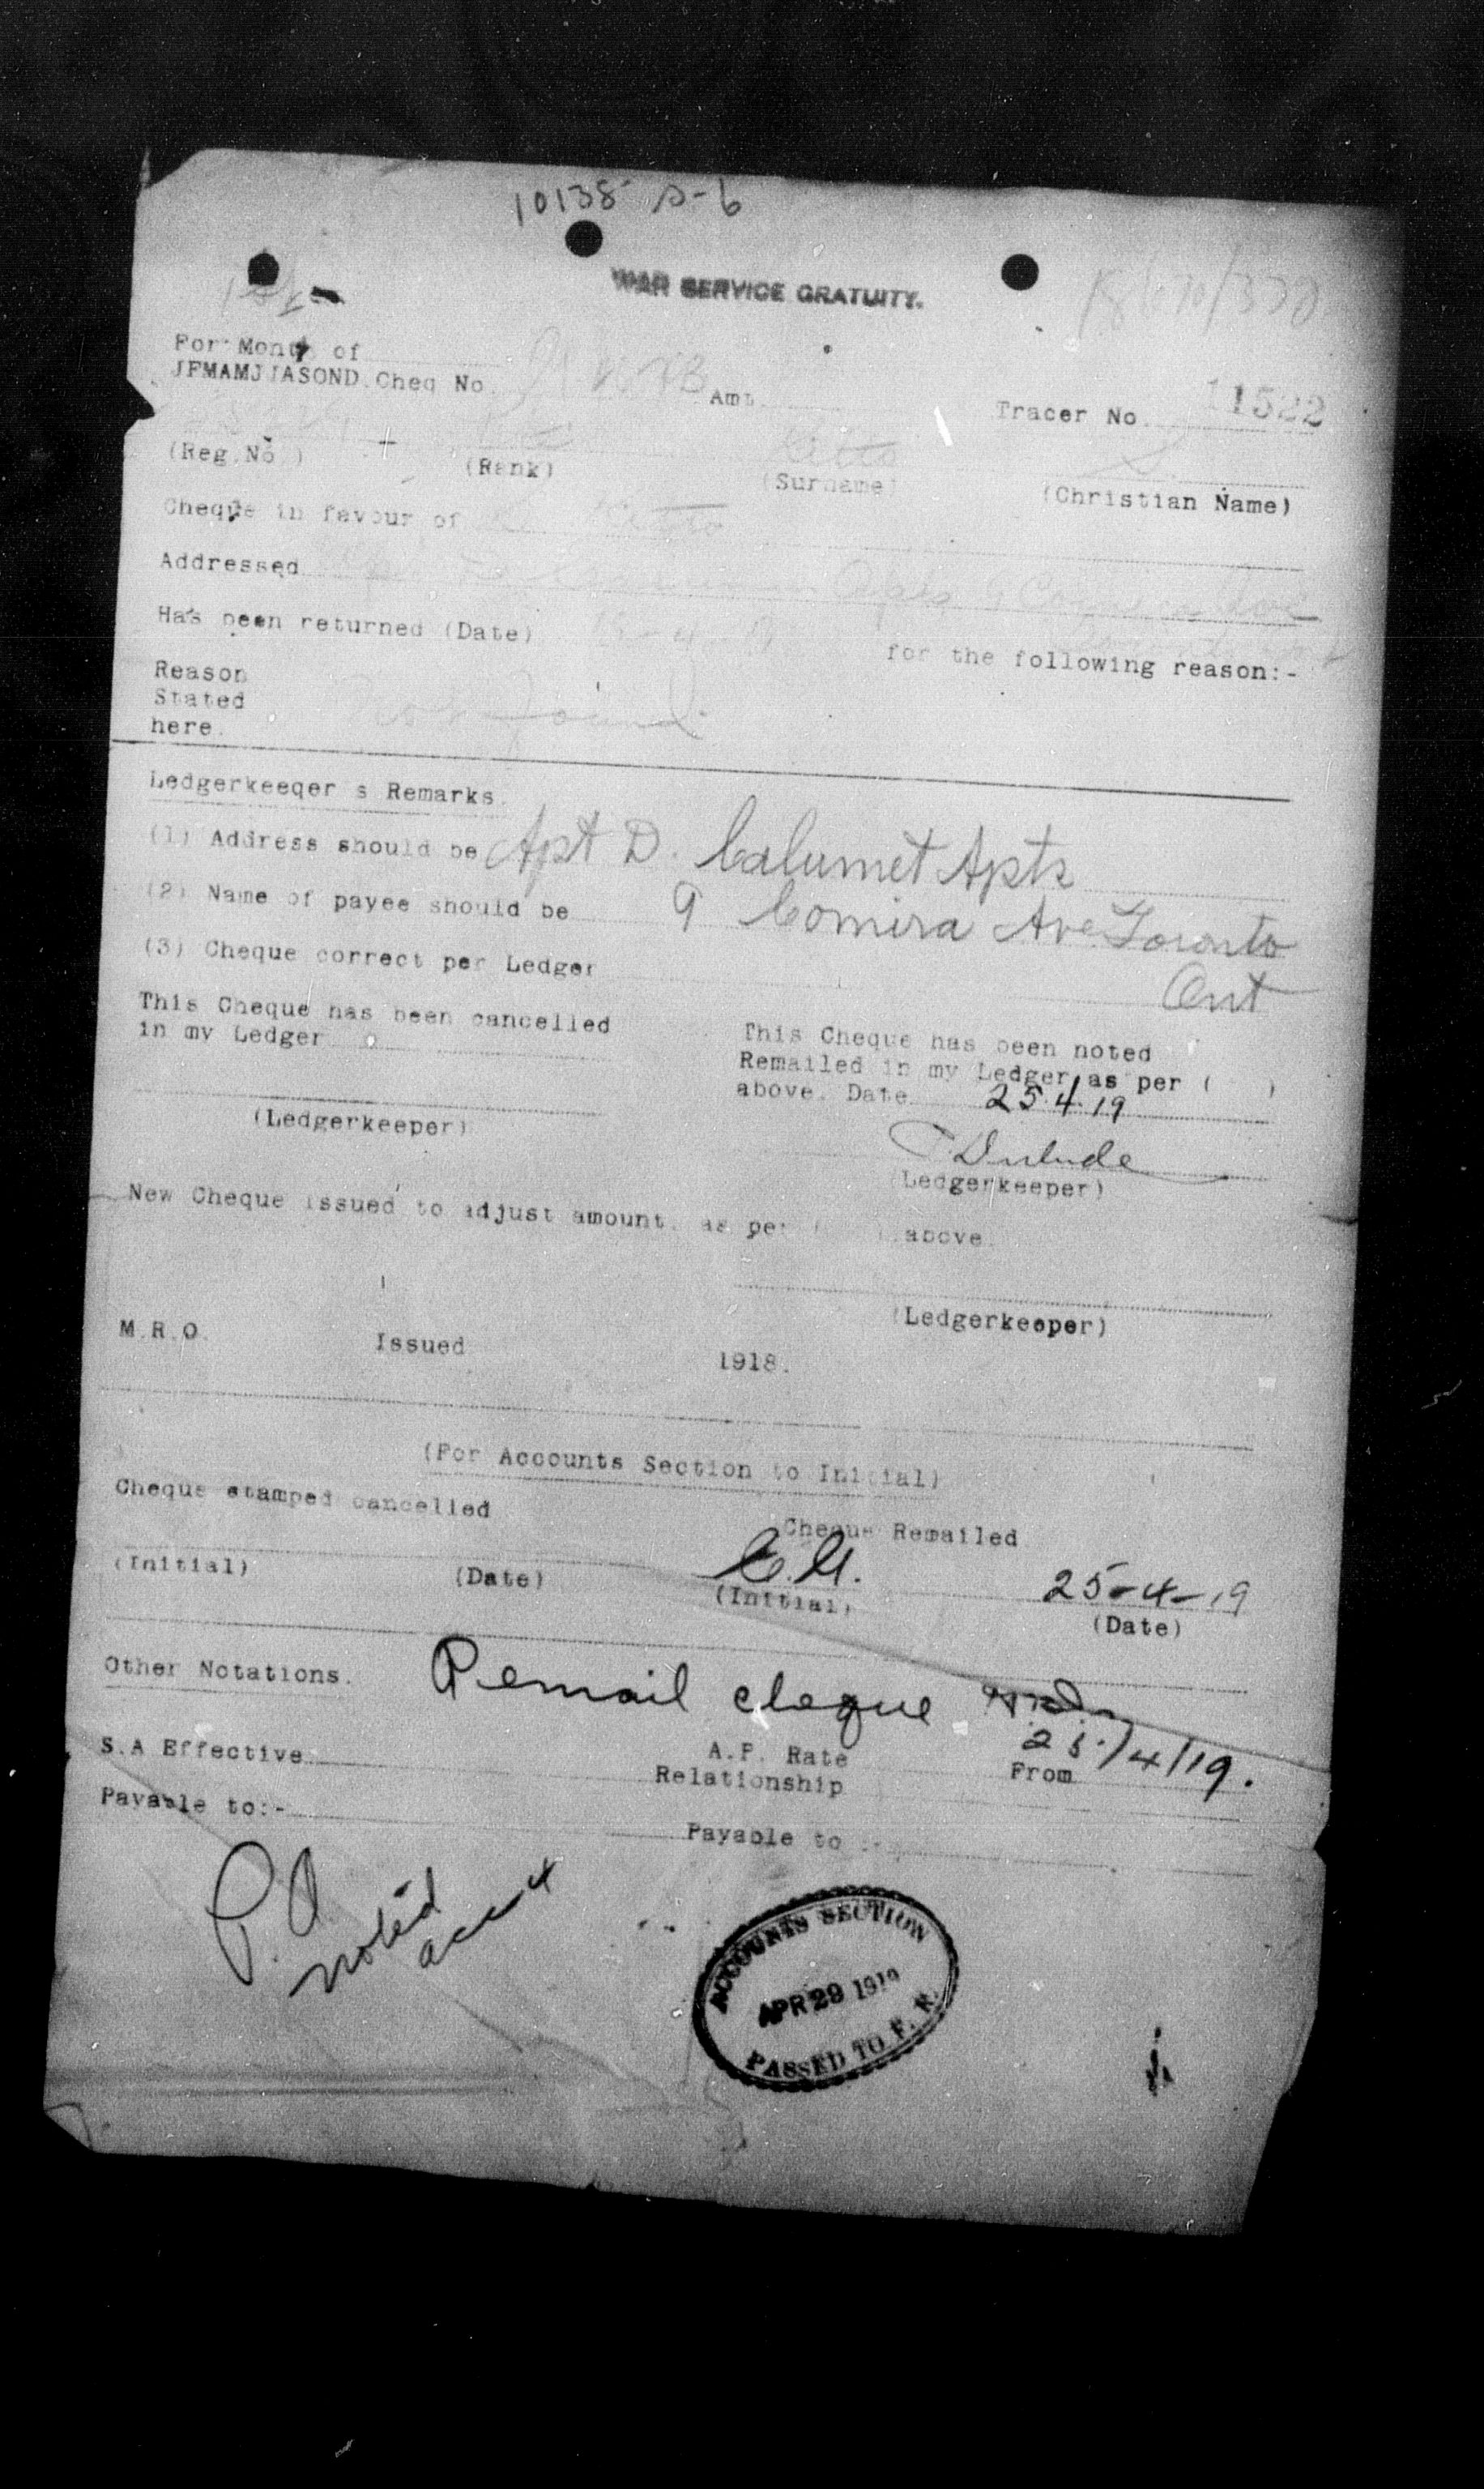 10138 D-6
WAR SERVICE GRATUITY.
For Month of
JFMAMJJASOND. Cheq No. Amt.
Tracer No. 11522
(Reg. No.) (Rank) (Surname) (Christian Name)
Kitto
Cheque in favour of Kitto
Addressed
Has been returned (Date) for the following reason:-
Reason
Stated
here.
not found
Ledgerkeeqer s Remarks.
(1) Address should be Apt D. Calumet Apts
(2) Name of payee should be 9 Comira Ave Toronto
(3) Cheque correct per Ledger Ont
This Cheque has been cancelled
in my Ledger
(Ledgerkeeper)
This Cheque has been noted
Remailed in my Ledger as per ( )
above. Date 25/4/19
(Ledgerkeeper)
New Cheque issued to adjust amount. as per ( ) above.
(Ledgerkeeper)
M.R.O. Issued 1918.
(For Accounts Section to Initial)
Cheque stamped cancelled Cheque Remailed
25-4-19
(Initial) (Date) (Initial) (Date)
Other Notations. Remail cheque
25/4/19.
S.A Effective A.P. Rate From
Relationship
Payable to:- Payable to :-
noted
ACCOUNTS SECTION
APR 29 1919
PASSED TO F. R.